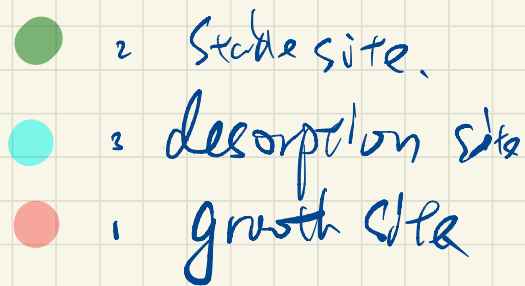 2 Stable site.
3 desorption site
1 growth site